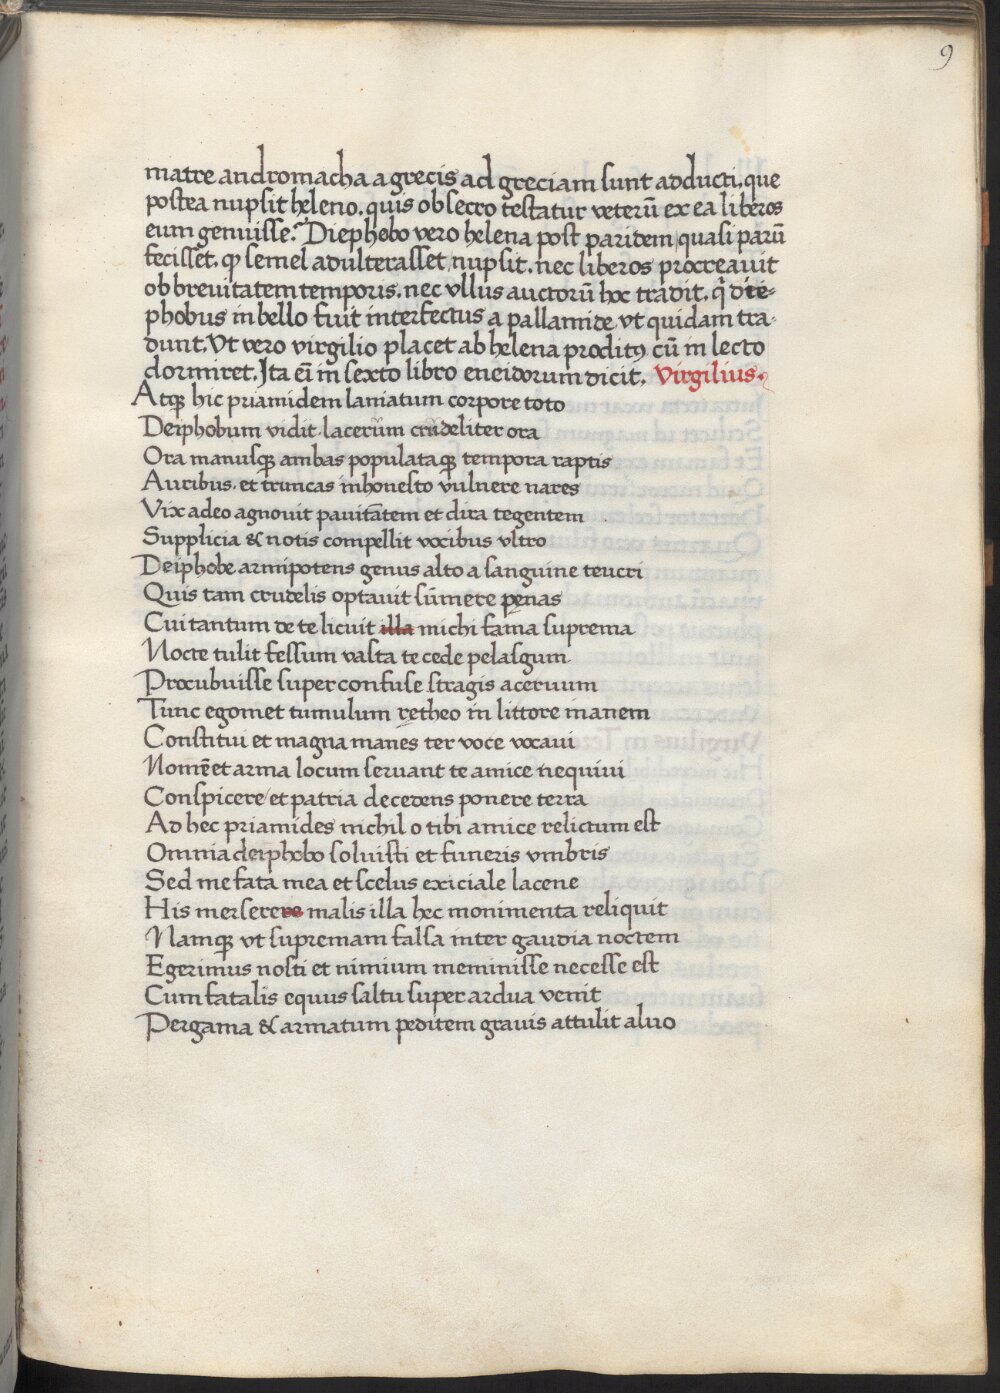 9
matre andromacha a grecis ad greciam sunt adducti. que
postea nupsit heleno. quis obsecro testatur veterū ex ea liberos
eum genuisse? Diephobo vero helena post paridem quasi parū
fecisset. ꝙ semel adulterasset nupsit. nec liberos procreavit
ob brevitatem temporis. nec vllus auctorū hoc tradit. q̄ die-
phobus in bello fuit interfectus a pallamide vt quidam tra-
dunt. Ut vero virgilio placet ab helena proditꝰ cū in lecto
dormiret. Ita eī in sexto libro eneidorum dicit. Virgilius.
Atqꝫ hic priamidem laniatum corpore toto
Deiphobum vidit. lacerum crudeliter ora
Ora manusqꝫ ambas populataqꝫ tempora raptis
Auribus. et truncas inhonesto vulnere nares
Vix adeo agnovit pavitātem et dira tegentem
Supplicia & notis compellit vocibus vltro
Deiphobe armipotens genus alto a sanguine teucri
Quis tam crudelis optavit sūmere pęnas
Cui tantum de te licuit illa michi fama suprema
Nocte tulit fessum vasta te cede pelasgum
Procubuisse super confuse stragis acervum
Tunc egomet tumulum retheo in littore inanem
Constitui et magna manes ter voce vocavi
Nomē et arma locum servant te amice nequivi
Conspicere et patria decedens ponere terra
Ad hec priamides nichil o tibi amice relictum est
Omnia deiphobo solvisti et funeris vmbris
Sed me fata mea et scelus exiciale lacene
His merserere malis illa hec monimenta reliquit
Namqꝫ vt supremam falsa inter gaudia noctem
Egerimus nosti et nimium meminisse necesse est
Cum fatalis equus saltu super ardua venit
Pergama & armatum peditem gravis attulit alvo